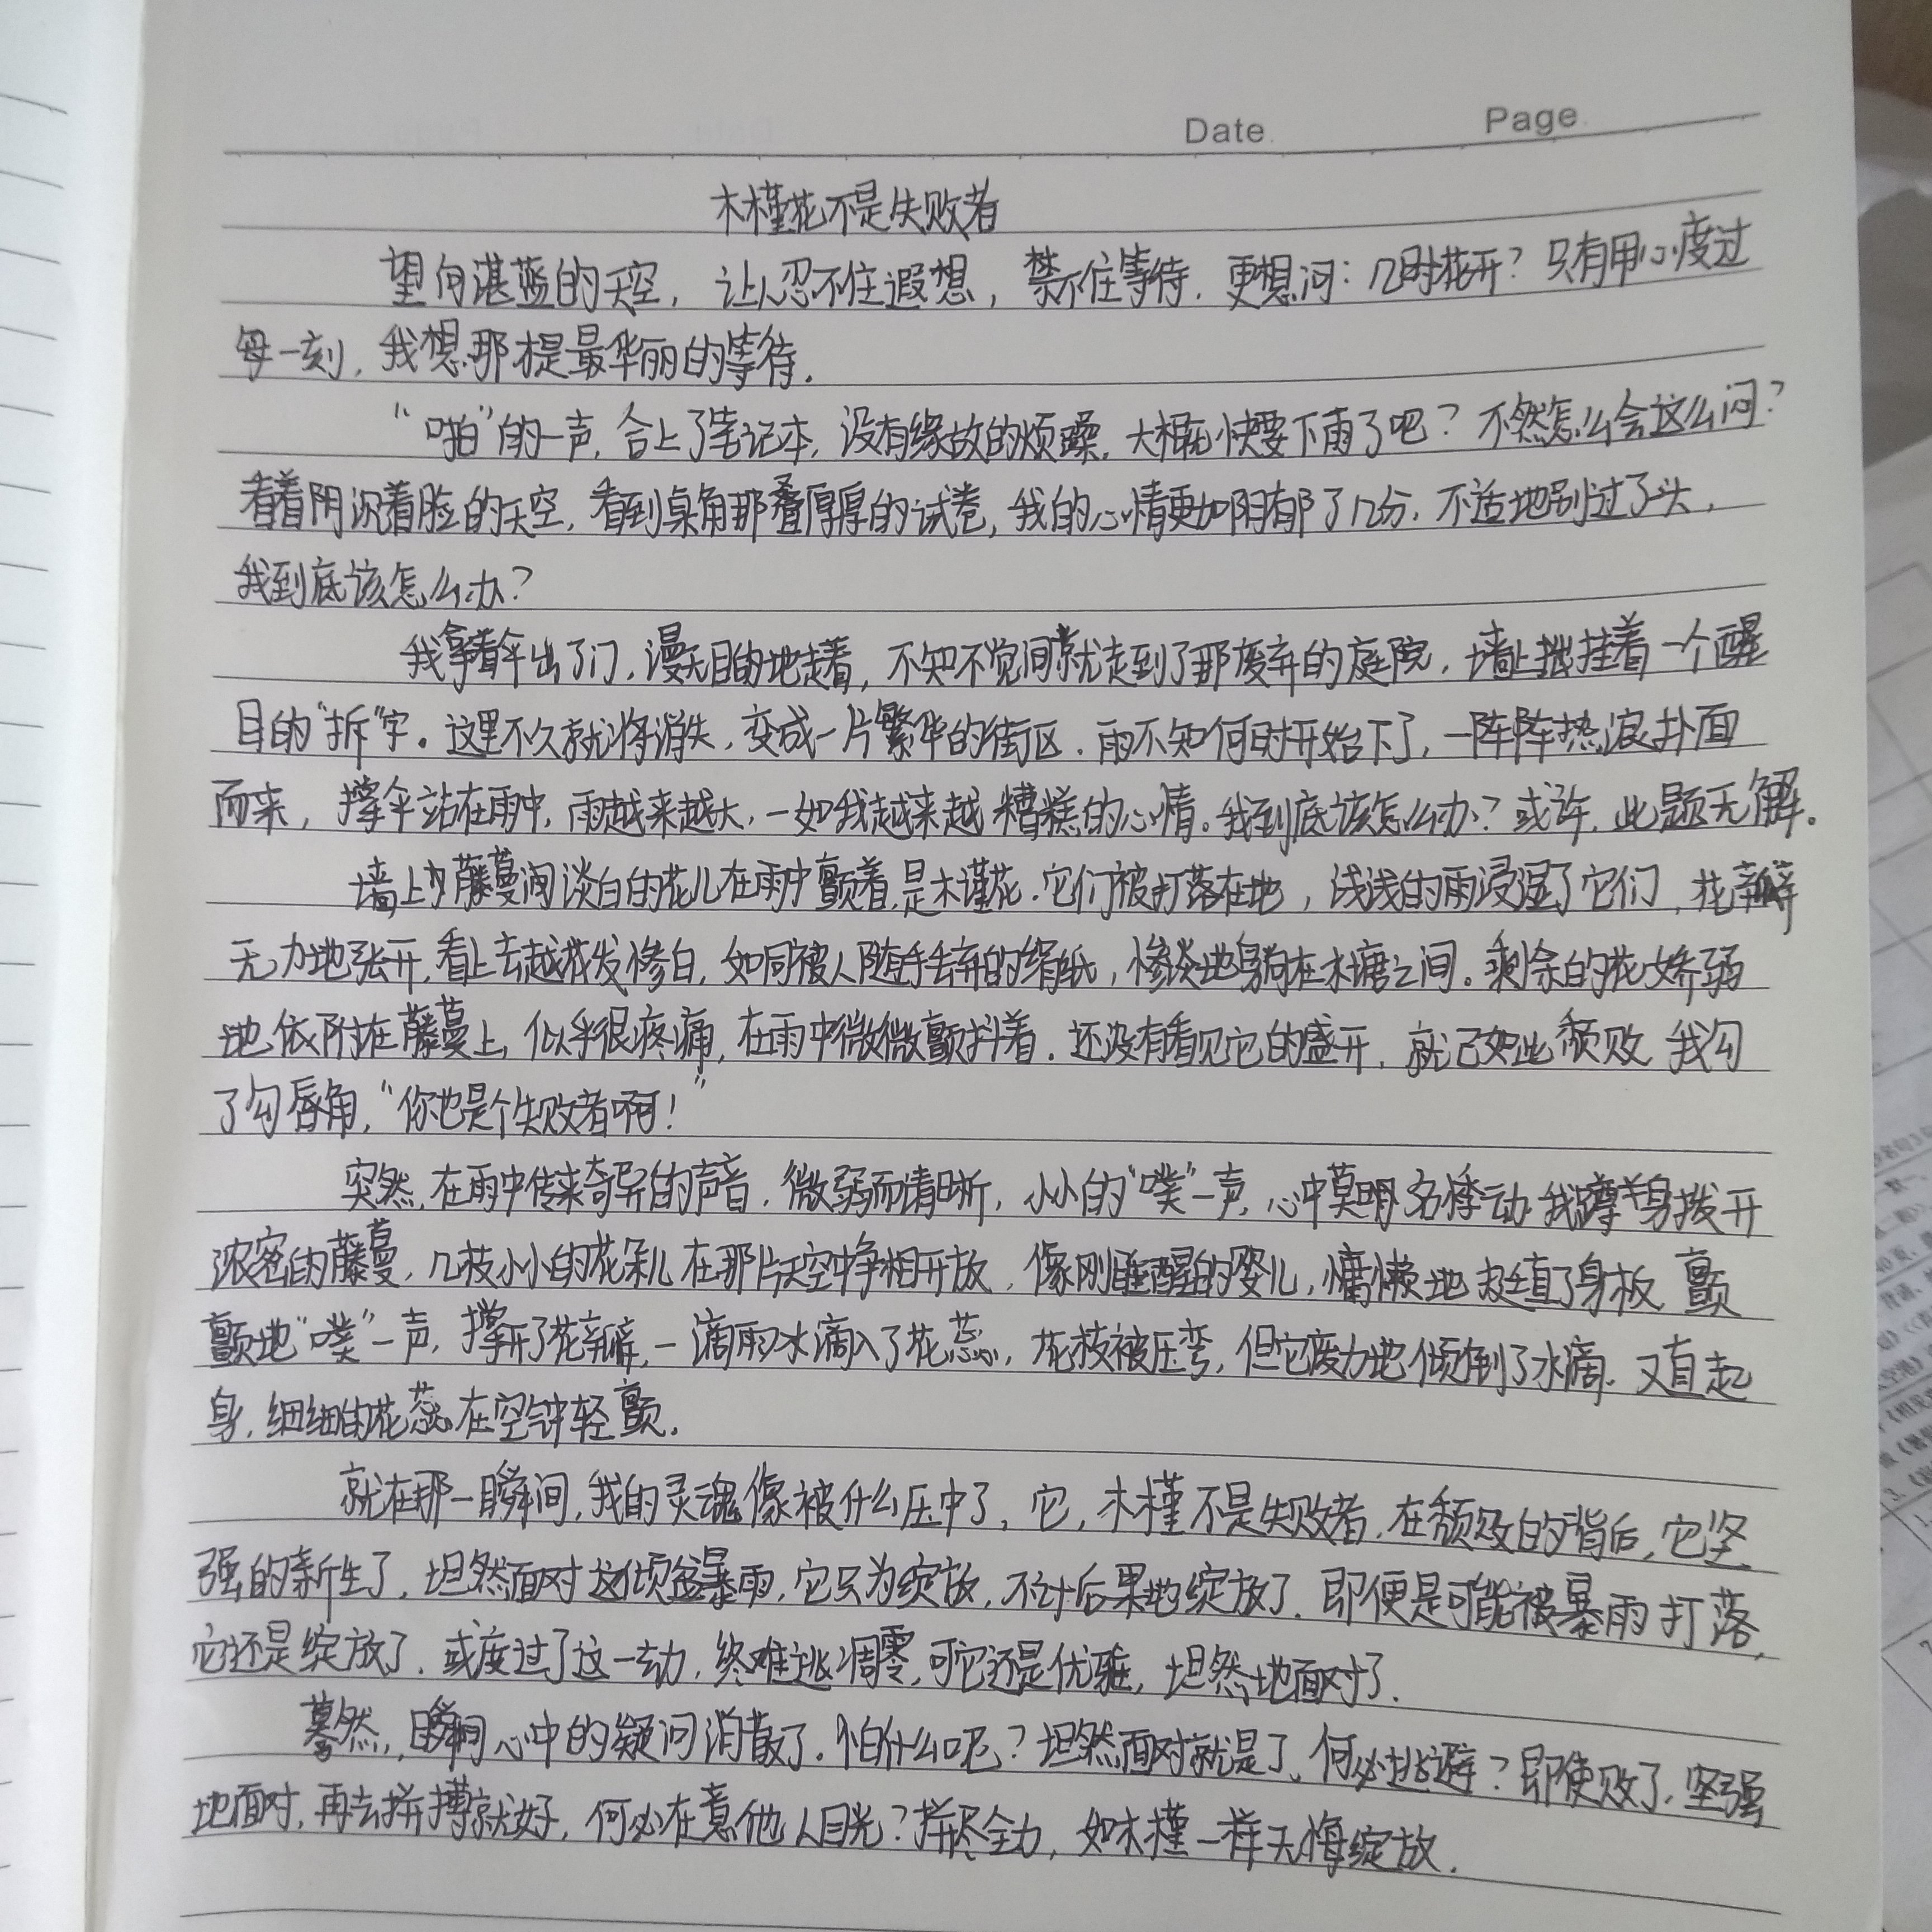 Date Page
木槿花不是失败者
望向湛蓝的天空，让人忍不住遐想，禁不住等待，更想问：几时花开？只有用心度过
每一刻，我想那才是最华丽的等待.
“啪”的一声，合上了笔记本，没有缘故的烦躁，大概快要下雨了吧？不然怎么会这么闷？
看着阴沉着脸的天空，看到桌角那叠厚厚的试卷，我的心情更加阴郁了几分，不适地别过了头，
我到底该怎么办？
我拿着伞出了门，漫无目的地走着，不知不觉间就走到了那废弃的庭院，墙上挂着一个醒
目的“拆”字。这里不久就将消失，变成一片繁华的街区，雨不知何时开始下了，一阵阵热浪扑面
而来，撑伞站在雨中，雨越来越大，一如我越来越糟糕的心情。我到底该怎么办？或许，此题无解。
墙上方藤蔓间淡白的花儿在雨中颤着，是木槿花，它们被打落在地，浅浅的雨浸湿了它们，花瓣
无力地张开，看上去越发惨白，如同被人随手丢弃的绢纸，惨淡地躺在水塘之间。剩余的花娇弱
地依附在藤蔓上，似乎很疼痛，在雨中微微颤抖着，还没有看见它的盛开，就已如此颓败 我勾
了勾唇角，“你也是个失败者啊！”
突然，在雨中传来奇异的声音，微弱而清晰，小小的“噗”一声，心中莫明名悸动 我蹲半身拨开
浓密的藤蔓，几枝小小的花朵儿在那片天空中争相开放，像刚睡醒的婴儿，慵懒地挺直了身板，颤
颤地“噗”一声，撑开了花瓣，一滴雨水滴入了花蕊，花枝被压弯，但它废力地倾倒了水滴，又直起
身，细细的花蕊在空中轻颤.
就在那一瞬间，我的灵魂像被什么压中了，它，木槿不是失败者，在颓败的背后，它坚
强的新生了，坦然面对这倾盆暴雨，它只为绽放，不计后果地绽放了，即便是可能被暴雨打落，
它还是绽放了，或度过了这一劫，终难逃凋零，可它还是优雅，坦然地面对了.
蓦然，瞬间心中的疑问消散了，怕什么呢？坦然面对就是了，何必逃避？即使败了，坚强
地面对，再去拼搏就好，何必在意他人目光？拼尽全力，如木槿一样无悔绽放.